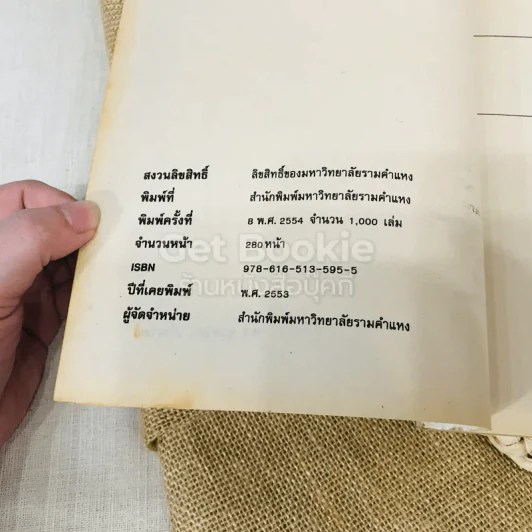 สงวนลิขสิทธิ์ ลิขสิทธิ์ของมหาวิทยาลัยรามคำแหง
พิมพ์ที่ สำนักพิมพ์มหาวิทยาลัยรามคำแหง
พิมพ์ครั้งที่ 8 พ.ศ. 2554 จำนวน 1,000 เล่ม
จำนวนหน้า 280 หน้า
Get Bookie
ISBN 978-616-513-595-5
ร้านหนังสือนุ๊คกี้
ปีที่เคยพิมพ์ พ.ศ. 2553
ผู้จัดจำหน่าย สำนักพิมพ์มหาวิทยาลัยรามคำแหง